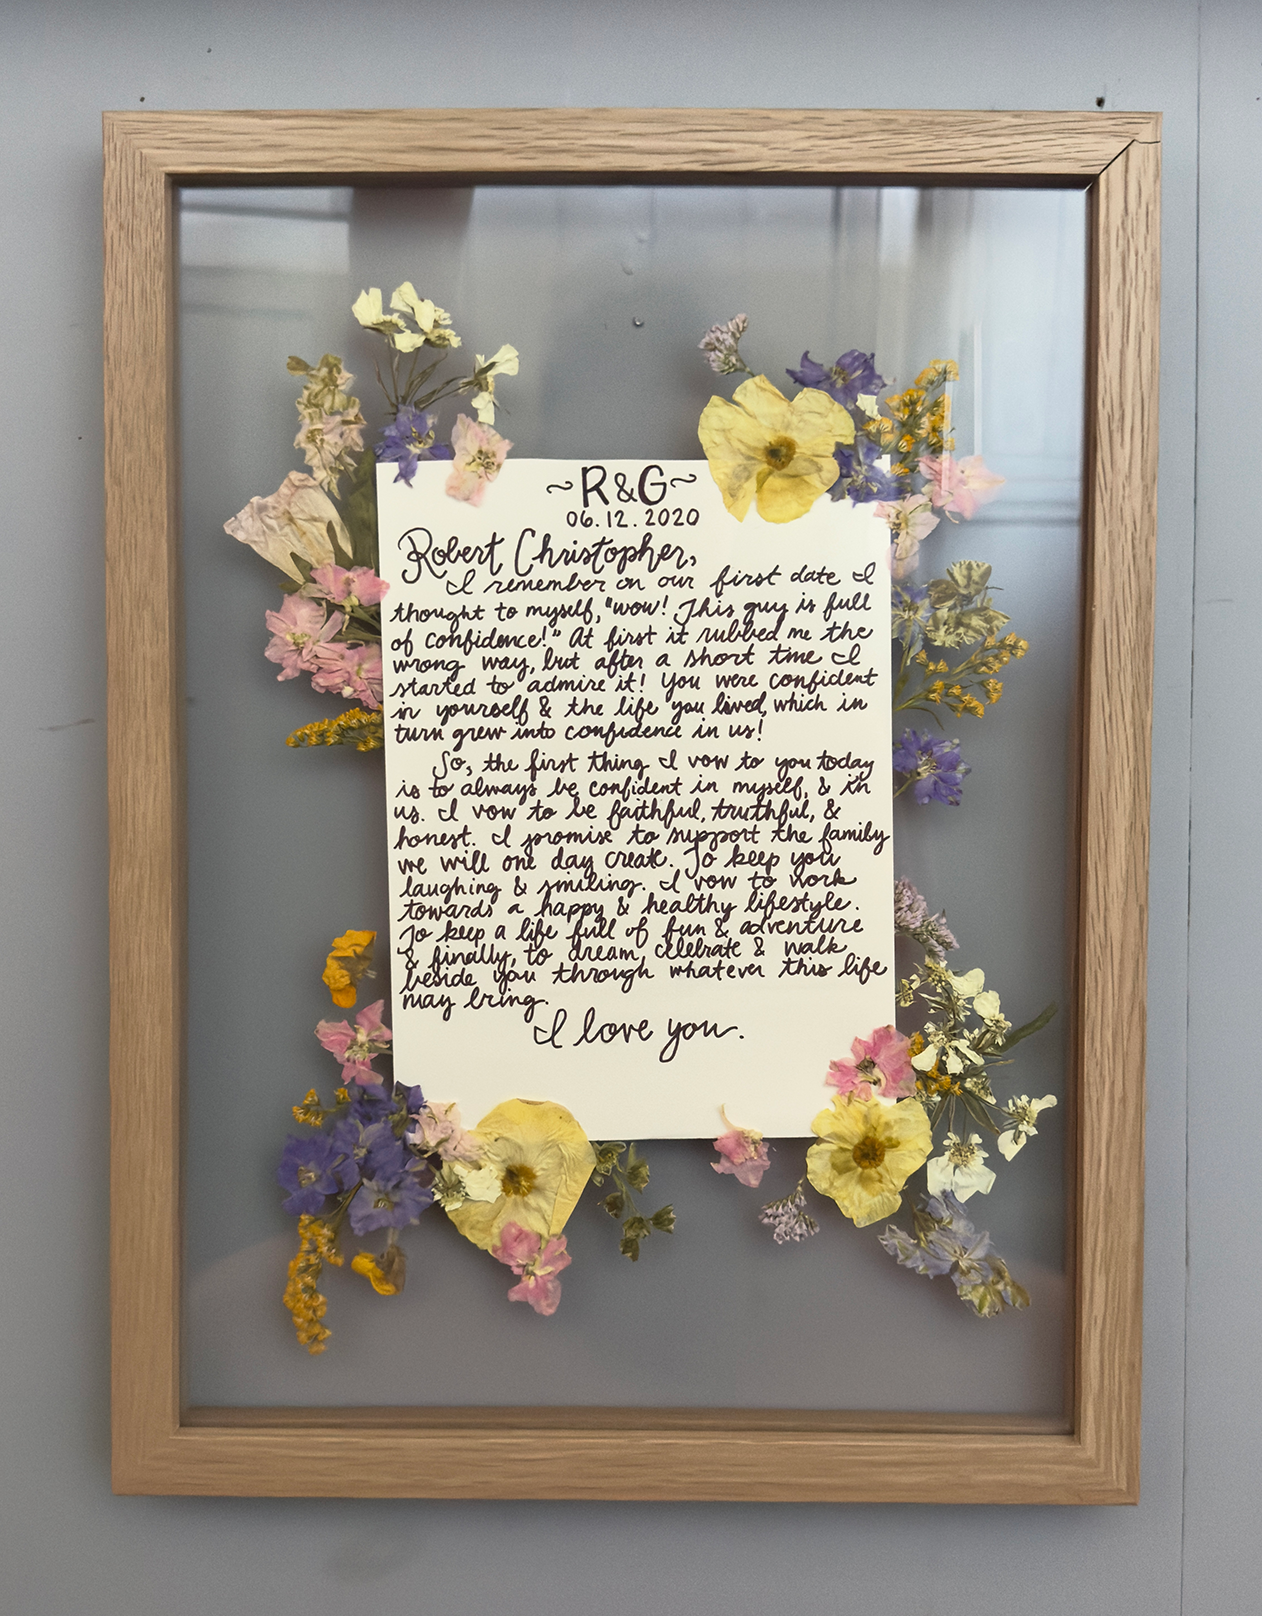 ~R&G~
06.12.2020
Robert Christopher,
I remember on our first date I
thought to myself, "wow! This guy is full
of confidence!" At first it rubbed me the
wrong way, but after a short time I
started to admire it! You were confident
in yourself & the life you lived, which in
turn grew into confidence in us!
So, the first thing I vow to you today
is to always be confident in myself, & in
us. I vow to be faithful, truthful, &
honest. I promise to support the family
we will one day create. To keep you
laughing & smiling. I vow to work
towards a happy & healthy lifestyle.
To keep a life full of fun & adventure
& finally, to dream, celebrate & walk
beside you through whatever this life
may bring.
I love you.